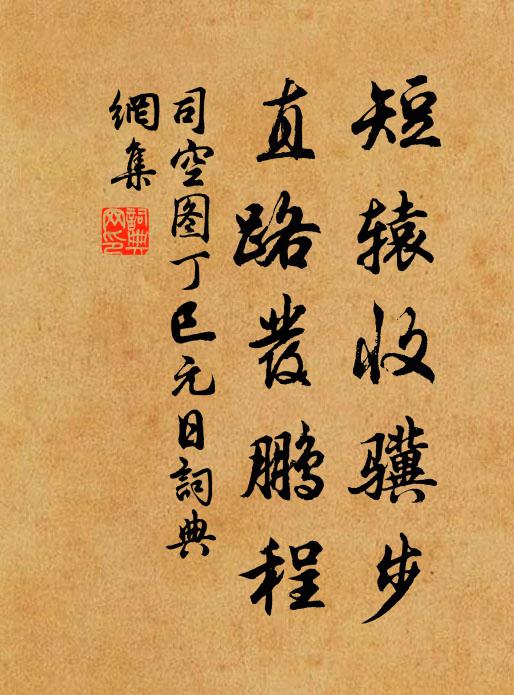 短辕收骥步
直路發鹏程
司空图丁巳元日詞典
網集
詞典
网印